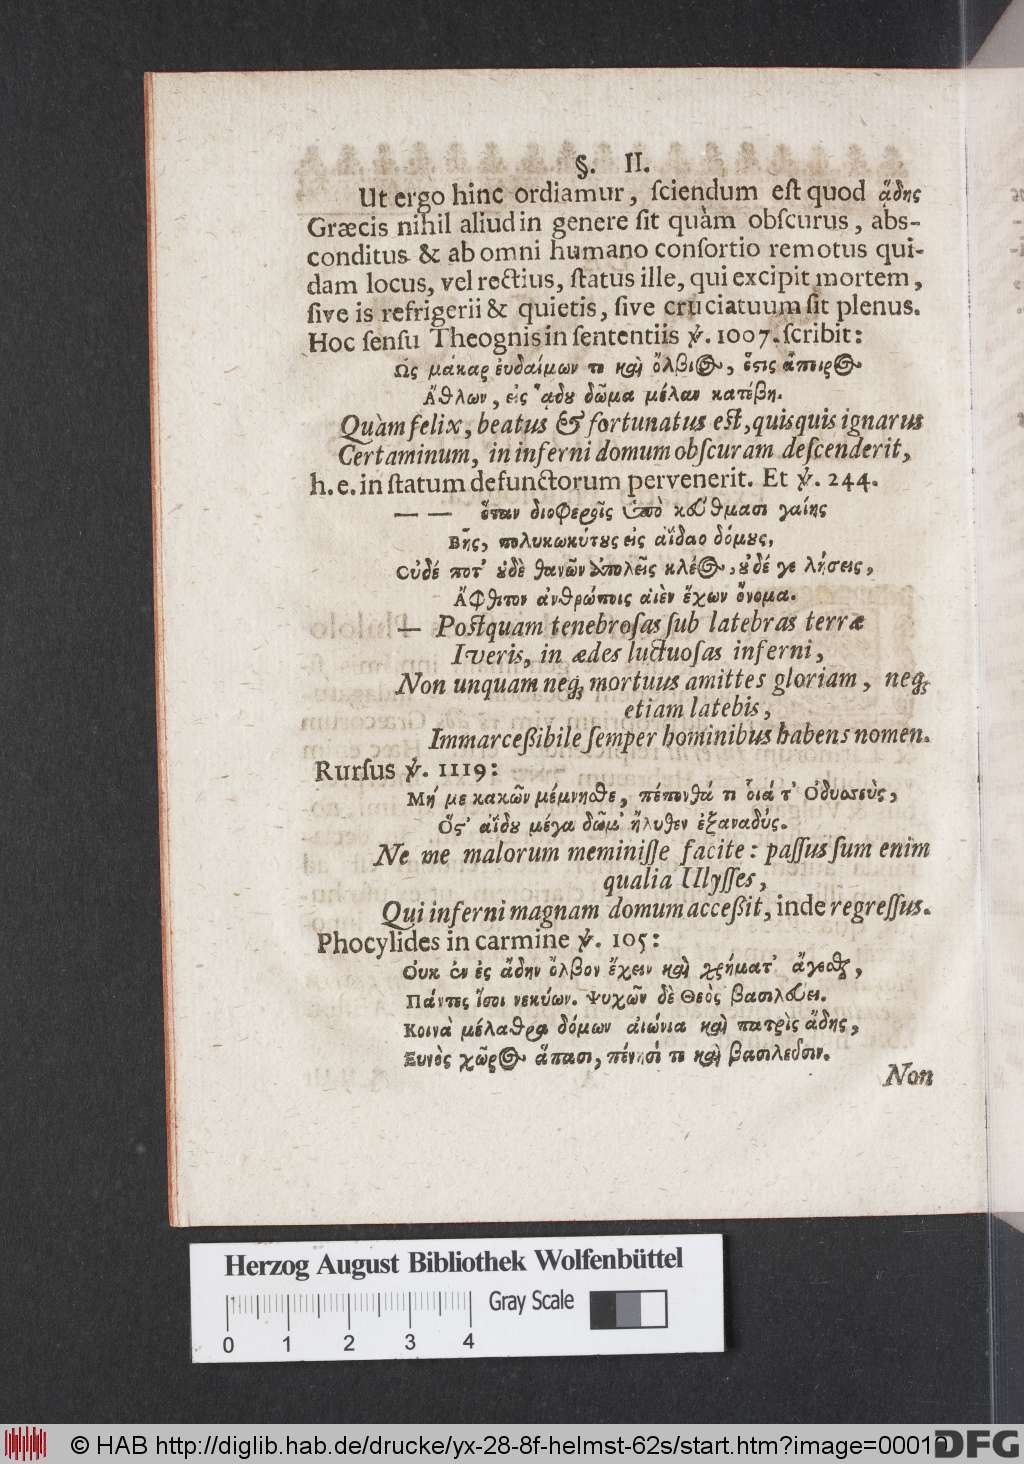 §. II.
Ut ergo hinc ordiamur, ſciendum eſt quod ᾅδης
Græcis nihil aliud in genere ſit quàm obſcurus, abs-
conditus & ab omni humano conſortio remotus qui-
dam locus, vel rectius, ſtatus ille, qui excipit mortem,
ſive is refrigerii & quietis, ſive cruciatuum ſit plenus.
Hoc ſenſu Theognis in ſententiis ℣. 1007. ſcribit:
Ὡς μάκαρ ἐυδαίμων τε καὶ ὄλβιος, ὅστις ἄπειρος
Ἄθλων, εἰς ἅδου δῶμα μέλαν κατέβη.
Quàm felix, beatus & fortunatus est, quisquis ignarus
Certaminum, in inferni domum obſcuram deſcenderit,
h. e. in ſtatum defunctorum pervenerit. Et ℣. 244.
— — ὅταν διοφερῆς ὑπὸ κεύθμασι γαίης
Βῆς, πολυκωκύτους εἰς ἀΐδαο δόμους,
Οὐδέ ποτ' οὐδὲ θανῶν ἀπολεῖς κλέος, οὐδέ γε λήσεις,
Ἄφθιτον ἀνθρώποις αἰὲν ἔχων ὄνομα.
— Postquam tenebroſas ſub latebras terræ
Iveris, in ædes luctuoſas inferni,
Non unquam neq; mortuus amittes gloriam, neq;
etiam latebis,
Immarceßibile ſemper hominibus habens nomen.
Rurſus ℣. 1119:
Μή με κακῶν μέμνησθε, πέπονθά τι οἷά τ' Ὀδυσσεὺς,
Ὅς' αἴδου μέγα δῶμ' ἤλυθεν ἐξαναδύς.
Ne me malorum meminiſſe facite: paſſus ſum enim
qualia Ulyſſes,
Qui inferni magnam domum acceßit, inde regreſſus.
Phocylides in carmine ℣. 105:
Οὐκ ἐν ἐς ἅδην ὄλβον ἔχειν καὶ χρήματ' ἄγεσθαι,
Πάντες ἴσοι νεκύων. Ψυχῶν δὲ Θεὸς βασιλεύει.
Κοινὰ μέλαθρα δόμων αἰώνια καὶ πατρὶς ἅδης,
Ξυνὸς χῶρος ἅπασι, πένησί τε καὶ βασιλεῦσιν.
Non
Herzog August Bibliothek Wolfenbüttel
Gray Scale
0 1 2 3 4
© HAB http://diglib.hab.de/drucke/yx-28-8f-helmst-62s/start.htm?image=00010
DFG